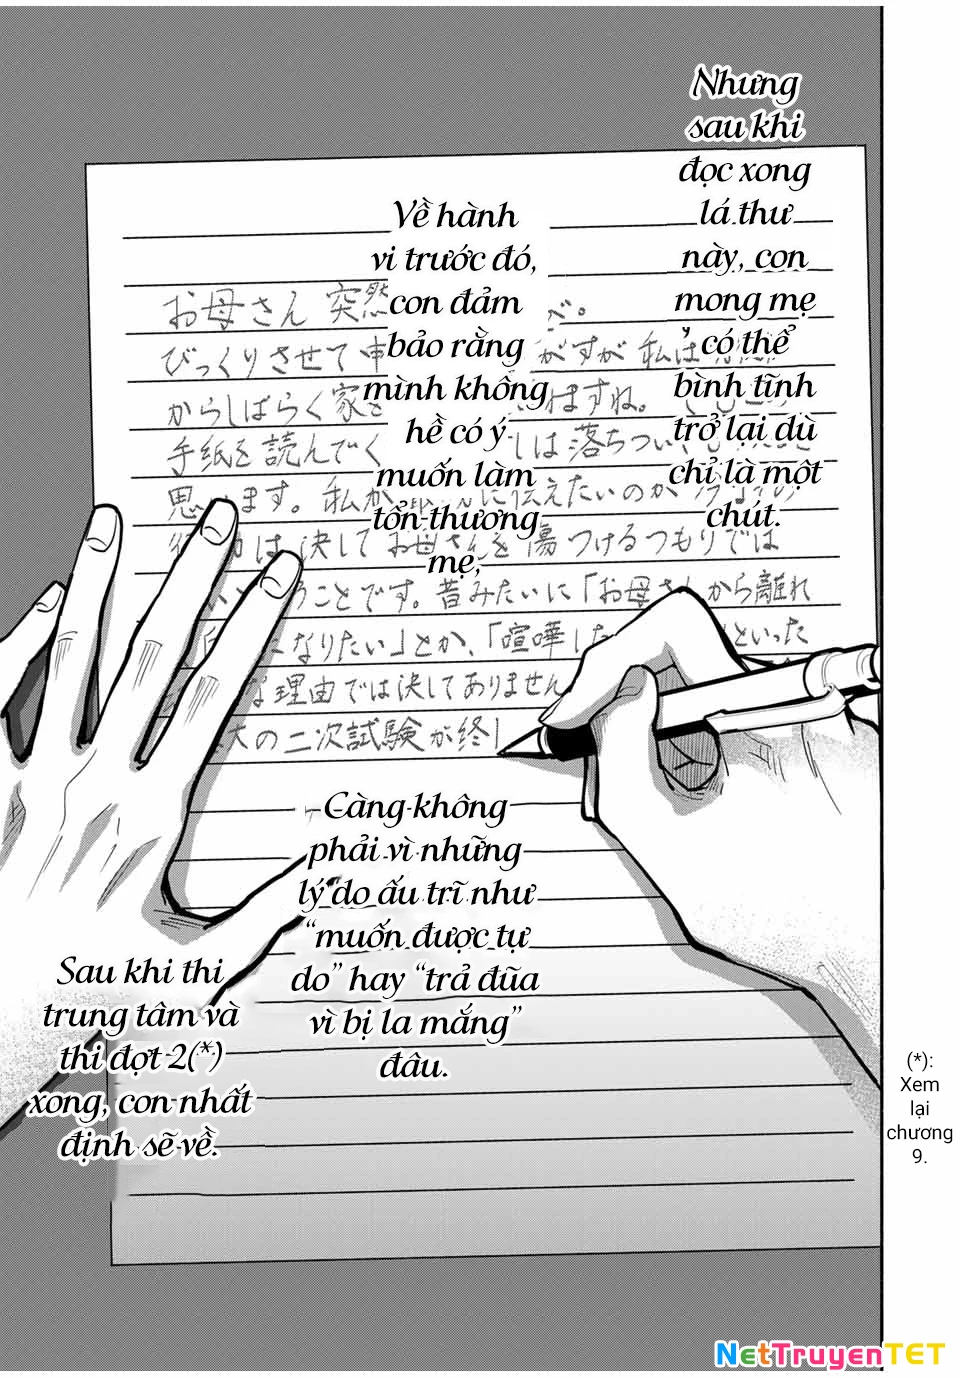 Nhưng
sau khi
đọc xong
lá thư
này, con
mong mẹ
có thể
bình tĩnh
trở lại dù
chỉ là một
chút.
Về hành
vi trước đó,
con đảm
bảo rằng
mình không
hề có ý
muốn làm
tổn thương
mẹ,
お母さん 突然
びっくりさせて申 がすが 私は
からしばらく家を ますね。
手紙を読んでく しは落ちつい
思います。私が に伝えたいのが
は 決して お母さんを 傷つけるつもりでは
ことです。昔みたいに「お母さんから離れ
になりたい」とか、「喧嘩した といった
な理由では決してありません
の二次試験が終
Càng không
phải vì những
lý do ấu trĩ như
“muốn được tự
do” hay “trả đũa
vì bị la mắng”
đâu.
Sau khi thi
trung tâm và
thi đợt 2(*)
xong, con nhất
định sẽ về.
(*):
Xem
lại
chương
9.
NetTruyenTET